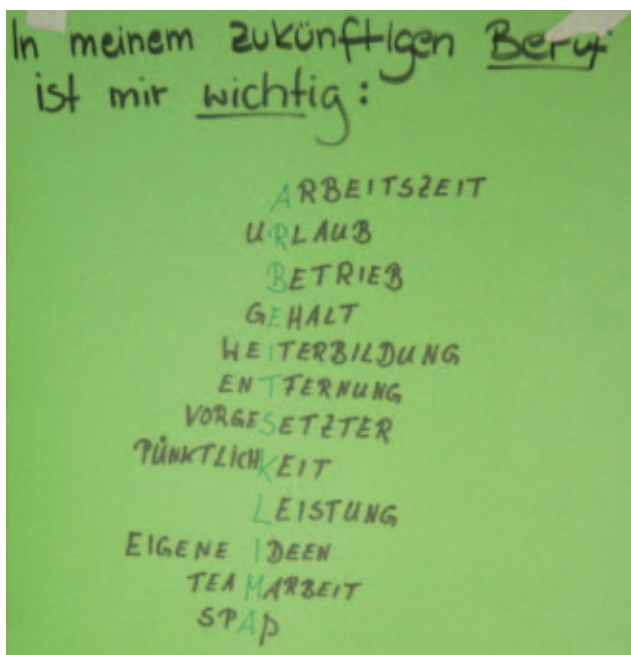 In meinem zukünftigen Beruf
ist mir wichtig:
ARBEITSZEIT
URLAUB
BETRIEB
GEHALT
WEITERBILDUNG
ENTFERNUNG
VORGESETZTER
PÜNKTLICHKEIT
LEISTUNG
EIGENE IDEEN
TEAMARBEIT
SPAß